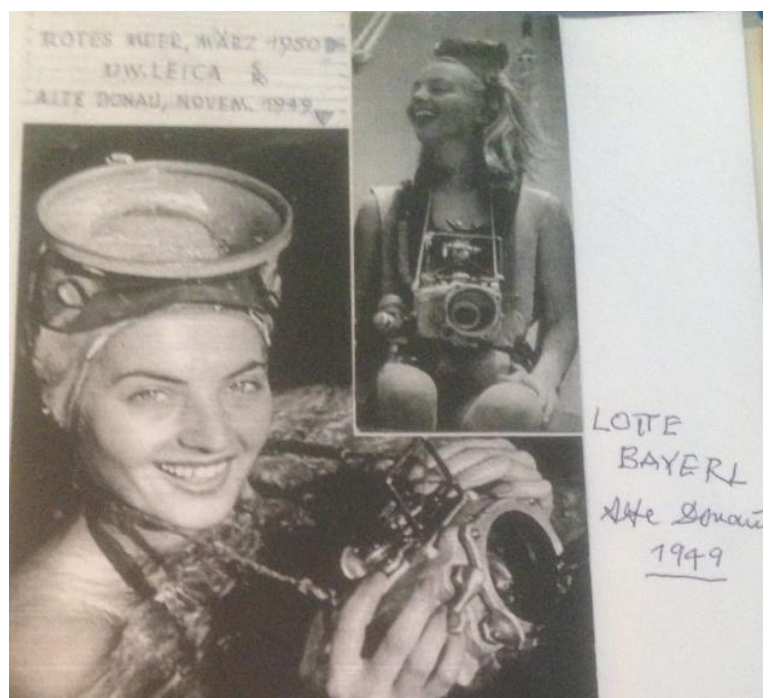 ROTES MEER, MÄRZ 1950
UW.LEICA
ALTE DONAU, NOVEM. 1949
LOTTE
BAYERL
Alte Donau
1949